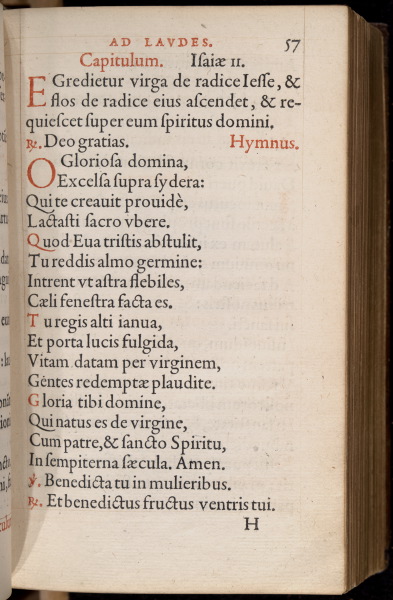 AD LAVDES. 57
Capitulum. Iſaiæ II.
EGredietur virga de radice Ieſſe, &
flos de radice eius aſcendet, & re-
quieſcet super eum ſpiritus domini.
℟. Deo gratias. Hymnus.
O Glorioſa domina,
Excelſa ſupra ſydera:
Qui te creauit prouidè,
Lactaſti ſacro vbere.
Quod Eua triſtis abſtulit,
Tu reddis almo germine:
Intrent vt aſtra flebiles,
Cæli feneſtra facta es.
Tu regis alti ianua,
Et porta lucis fulgida,
Vitam datam per virginem,
Gẽtes redemptæ plaudite.
Gloria tibi domine,
Qui natus es de virgine,
Cum patre, & ſancto Spiritu,
In ſempiterna ſæcula. Amen.
℣. Benedicta tu in mulieribus.
℟. Et benedictus fructus ventris tui.
H